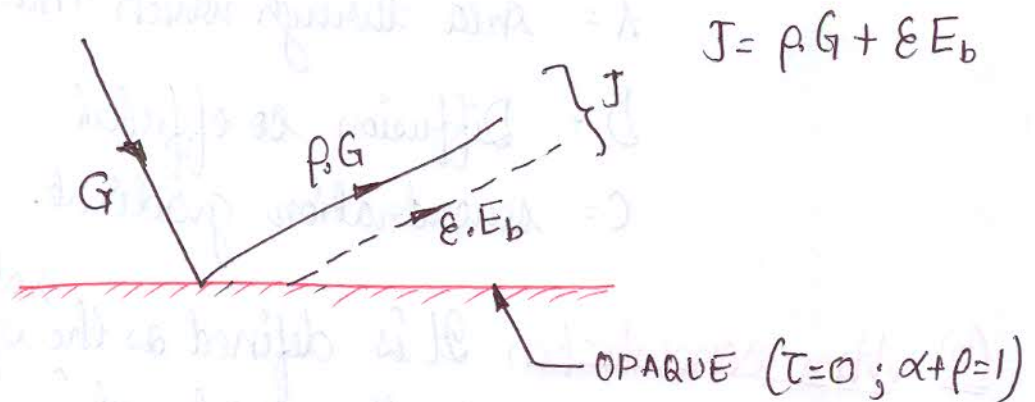 J = ρG + εE_b
J
ρ.G
G
ε.E_b
OPAQUE (τ=0 ; α+ρ=1)